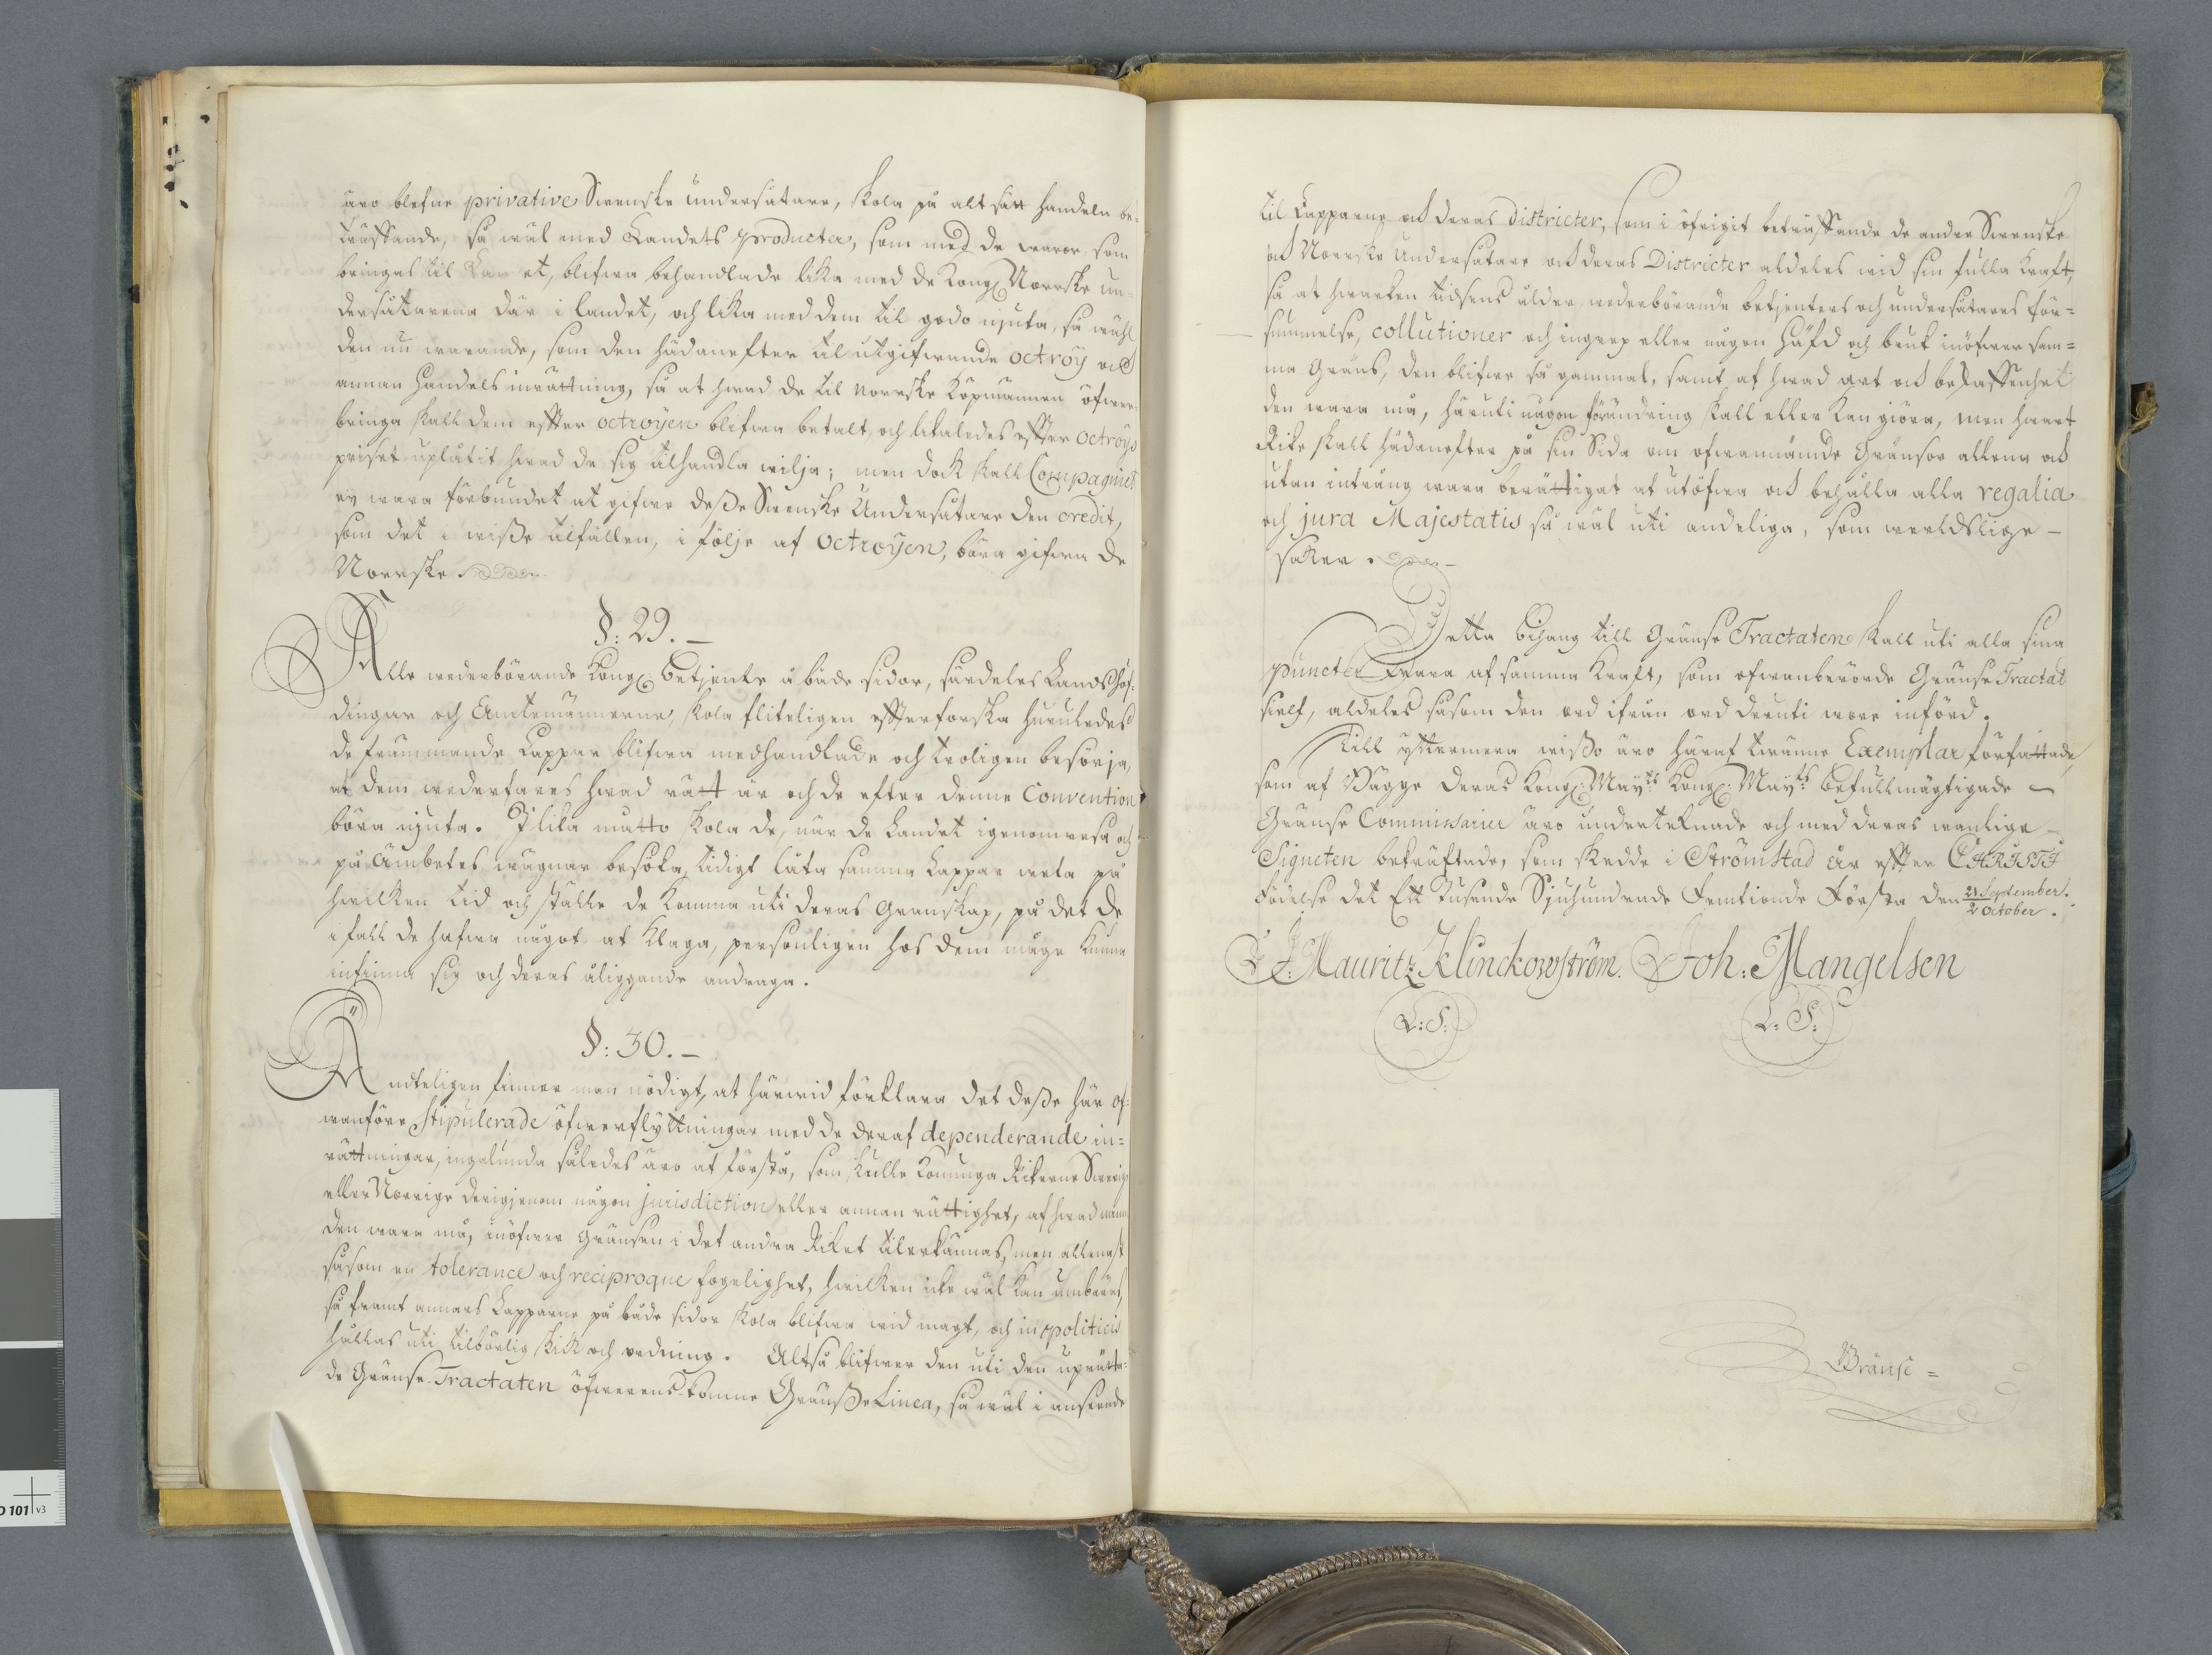 äro blefne privative Swenske undersåtare, skola på alt sätt handeln be-
träffande, så wäl med Landets producter, som med de waror, som
bringas til Landet, blifwa behandlade lika med de Kongl. Norrske un-
dersåtarena där i landet, och lika med dem til godo niuta, så wähl
den nu warande, som den hädanefter til utgifwande octroy och
annan Handels inrättning, så at hwad de til norrske Köpmännen öfwer-
bringa skall dem effter octroyen blifwa betalt, och likaledes effter octroys
priset uplåtit hwad de sig tilhandla wilja; men dock skall Compagniet
ey wara förbundet at gifwa deße Swenske Undersåtare den credit,
som det i wiße tilfällen, i följe af Octroyen, böra gifwa de
Norrske.
§: 29. –
Alle wederbörande Kongl. Betjente å både sidor, särdeles Landshöf-
dingar och Amtemännerne, skola fliteligen effterforska huruledes
de främmande Lappar blifwa medhandlade och troligen besörja,
at dem wederfares hwad rätt är och de efter denne Convention
böra niuta. Jlika matto skola de, när de Landet igenomresa och
på Ämbetes wägnar besöka, tidigt låta samma Lappar weta på
hwilken tid och ställe de komma uti deras Granskap, på det de
i fall de hafwa något at klaga, personligen hos dem måge kunna
infinna sig och deras åliggande andraga.
§: 30. –
Ändteligen finner man nödigt, at härwid förklara det deße här of-
wanföre stipulerade öfwerflyttningar med de deraf dependerande in-
rättningar, ingalunda således äro at förstå, som skulle Konunga Rikerne Swerige
eller Norrige derigienom någon jurisdiction eller annan rättighet, af hwad namn
den wara må, inöfwer Gränsen i det andra Riket tilerkännas, men allenast
såsom en tolerance och reciproque fogelighet, hwilken icke wäl kan umbäras,
så framt annars Lapparne på både sidor skola blifwa wid magt, och in politicis
hållas uti tilbörlig skick och ordning. Altså blifwer den uti den uprätta-
de Gränse-Tractaten öfwerens-komne Gränße Linea, så wäl i anseende
til Lapparne och deras districter, som i öfrigit beträffande de andre Swenske
och Norrske Undersåtare och deras Districter aldeles wid sin fulla Kraft,
så at hwarken tidsens ålder, wederbörande betjenters och undersåtares för-
summelse, collutioner och ingrep eller någon Häfd och bruk inöfwer sam-
ma Gräns, den blifwe så gammal, samt af hwad art och beskaffenhet
den wara må, häruti någon förändring skall eller kan giöra, men hwart
Rike skall hädanefter på sin Sida om ofwannämde Gränsor allena och
utan intrång wara berättigat at utöfwa och behålla alla regalia
och jura Majestatis så wäl uti andeliga, som werldslige –
saker. –
Detta bihang till Gränse Tractaten skall uti alla sina
puncter wara af samma Kraft, som ofwanberörde Gränse Tractat
sielf, aldeles såsom den ord ifrån ord deruti wore införd.
Till yttermera wißo äro häraf twänne Exemplar författade,
som af Bägge Deras Kongl: Mayts Kongl: Mayts Befullmägtigade –
Gränse Commissarier äro underteknade och med deras wanlige –
Signeten bekräftade, som skedde i Strömstad År effter CHRISTI
Födelse det Ett Tusende Siuhundrade Femtionde Första den 21 September. / 2 October.
J. Mauritz Klinckowström. Joh: Mangelsen
L: S: L: S:
Gränse =
D 101 v3